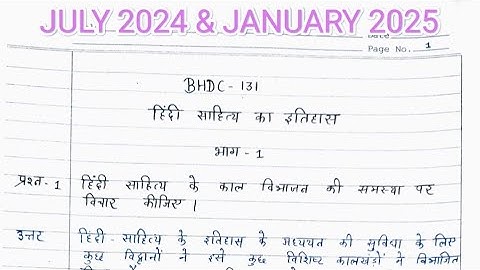 JULY 2024 & JANUARY 2025
Page No. 1
BHDC - 131
हिंदी साहित्य का इतिहास
भाग - 1
प्रश्न - 1 हिंदी साहित्य के काल विभाजन की समस्या पर
विचार कीजिए ।
उत्तर हिंदी - साहित्य के इतिहास के अध्ययन की सुविधा के लिए
कुछ विद्वानों ने इसे कुछ विशिष्ट कालखंडों में विभाजित